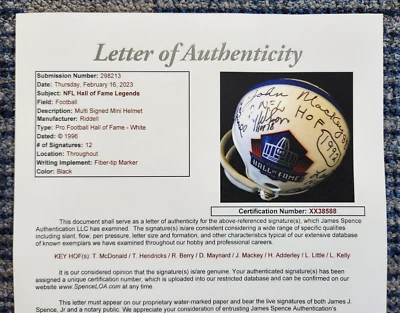 Letter of Authenticity
Submission Number: 298213
Date: Thursday, February 16, 2023
Subject: NFL Hall of Fame Legends
Field: Football
Description: Multi Signed Mini Helmet
Manufacturer: Riddell
Type: Pro Football Hall of Fame - White
Date: © 1996
# of Signatures: 12
Location: Throughout
Writing Implement: Fiber-tip Marker
Color: Black
John Mackey
HOF 1992
HALL OF FAME
Certification Number: XX38588
This document shall serve as a letter of authenticity for the above-referenced signature(s), which James Spence
Authentication LLC has examined. The signature(s) is/are consistent considering a wide range of specific qualities
including slant, flow, pen pressure, letter size and formation, and other characteristics typical of our extensive database
of known exemplars we have examined throughout our hobby and professional careers.
KEY HOF(s): T. McDonald / T. Hendricks / R. Berry / D. Maynard / J. Mackey / H. Adderley / L. Little / L. Kelly
It is our considered opinion that the signature(s) is/are genuine. Your authenticated signature(s) has been
assigned a unique certification number, which is uploaded into our restricted database and can be confirmed on our
website www.SpenceLOA.com at any time.
This letter must appear on our proprietary water-marked paper and bear the live signatures of both James J.
Spence, Jr and a notary public. We appreciate your consideration of entrusting James Spence Authentication's